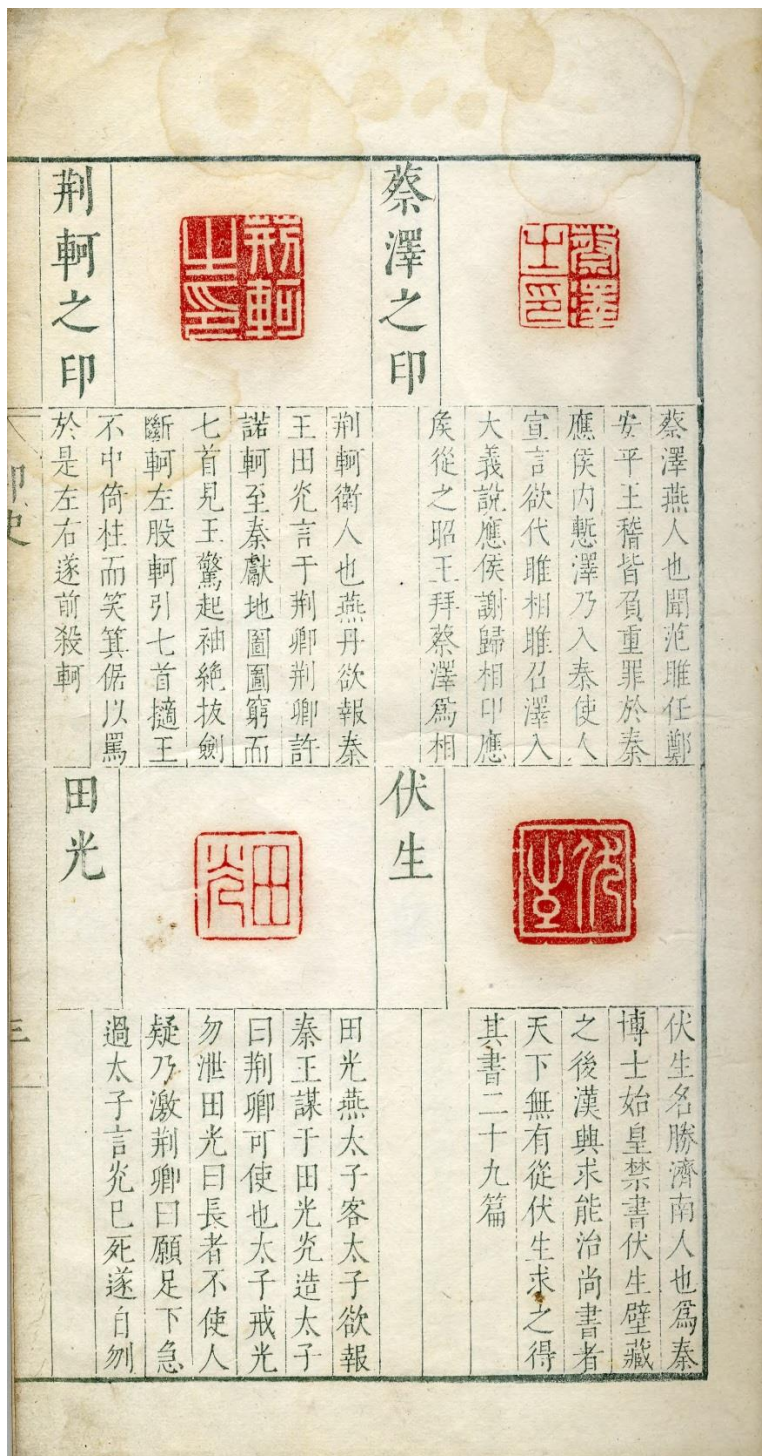 蔡澤之印
蔡澤
之印
蔡澤燕人也聞范雎任鄭
安平王稽皆負重罪於秦
應侯内慙澤乃入秦使人
宣言欲代雎相雎召澤入
大義說應侯謝歸相印應
矦從之昭王拜蔡澤爲相
荆軻之印
荊軻
之印
荆軻衛人也燕丹欲報秦
王田灮言于荆卿荆卿許
諾軻至秦獻地圖圖窮而
七首見王驚起袖絶拔劍
斷軻左股軻引七首擿王
不中倚柱而笑箕倨以罵
於是左右遂前殺軻
伏生
伏生
伏生名勝濟南人也爲秦
博士始皇禁書伏生壁藏
之後漢興求能治尚書者
天下無有從伏生求之得
其書二十九篇
田光
田光
田光燕太子客太子欲報
秦王謀于田光灮造太子
曰荆卿可使也太子戒光
勿泄田光曰長者不使人
疑乃激荆卿曰願足下急
過太子言灮已死遂自刎
印史
三